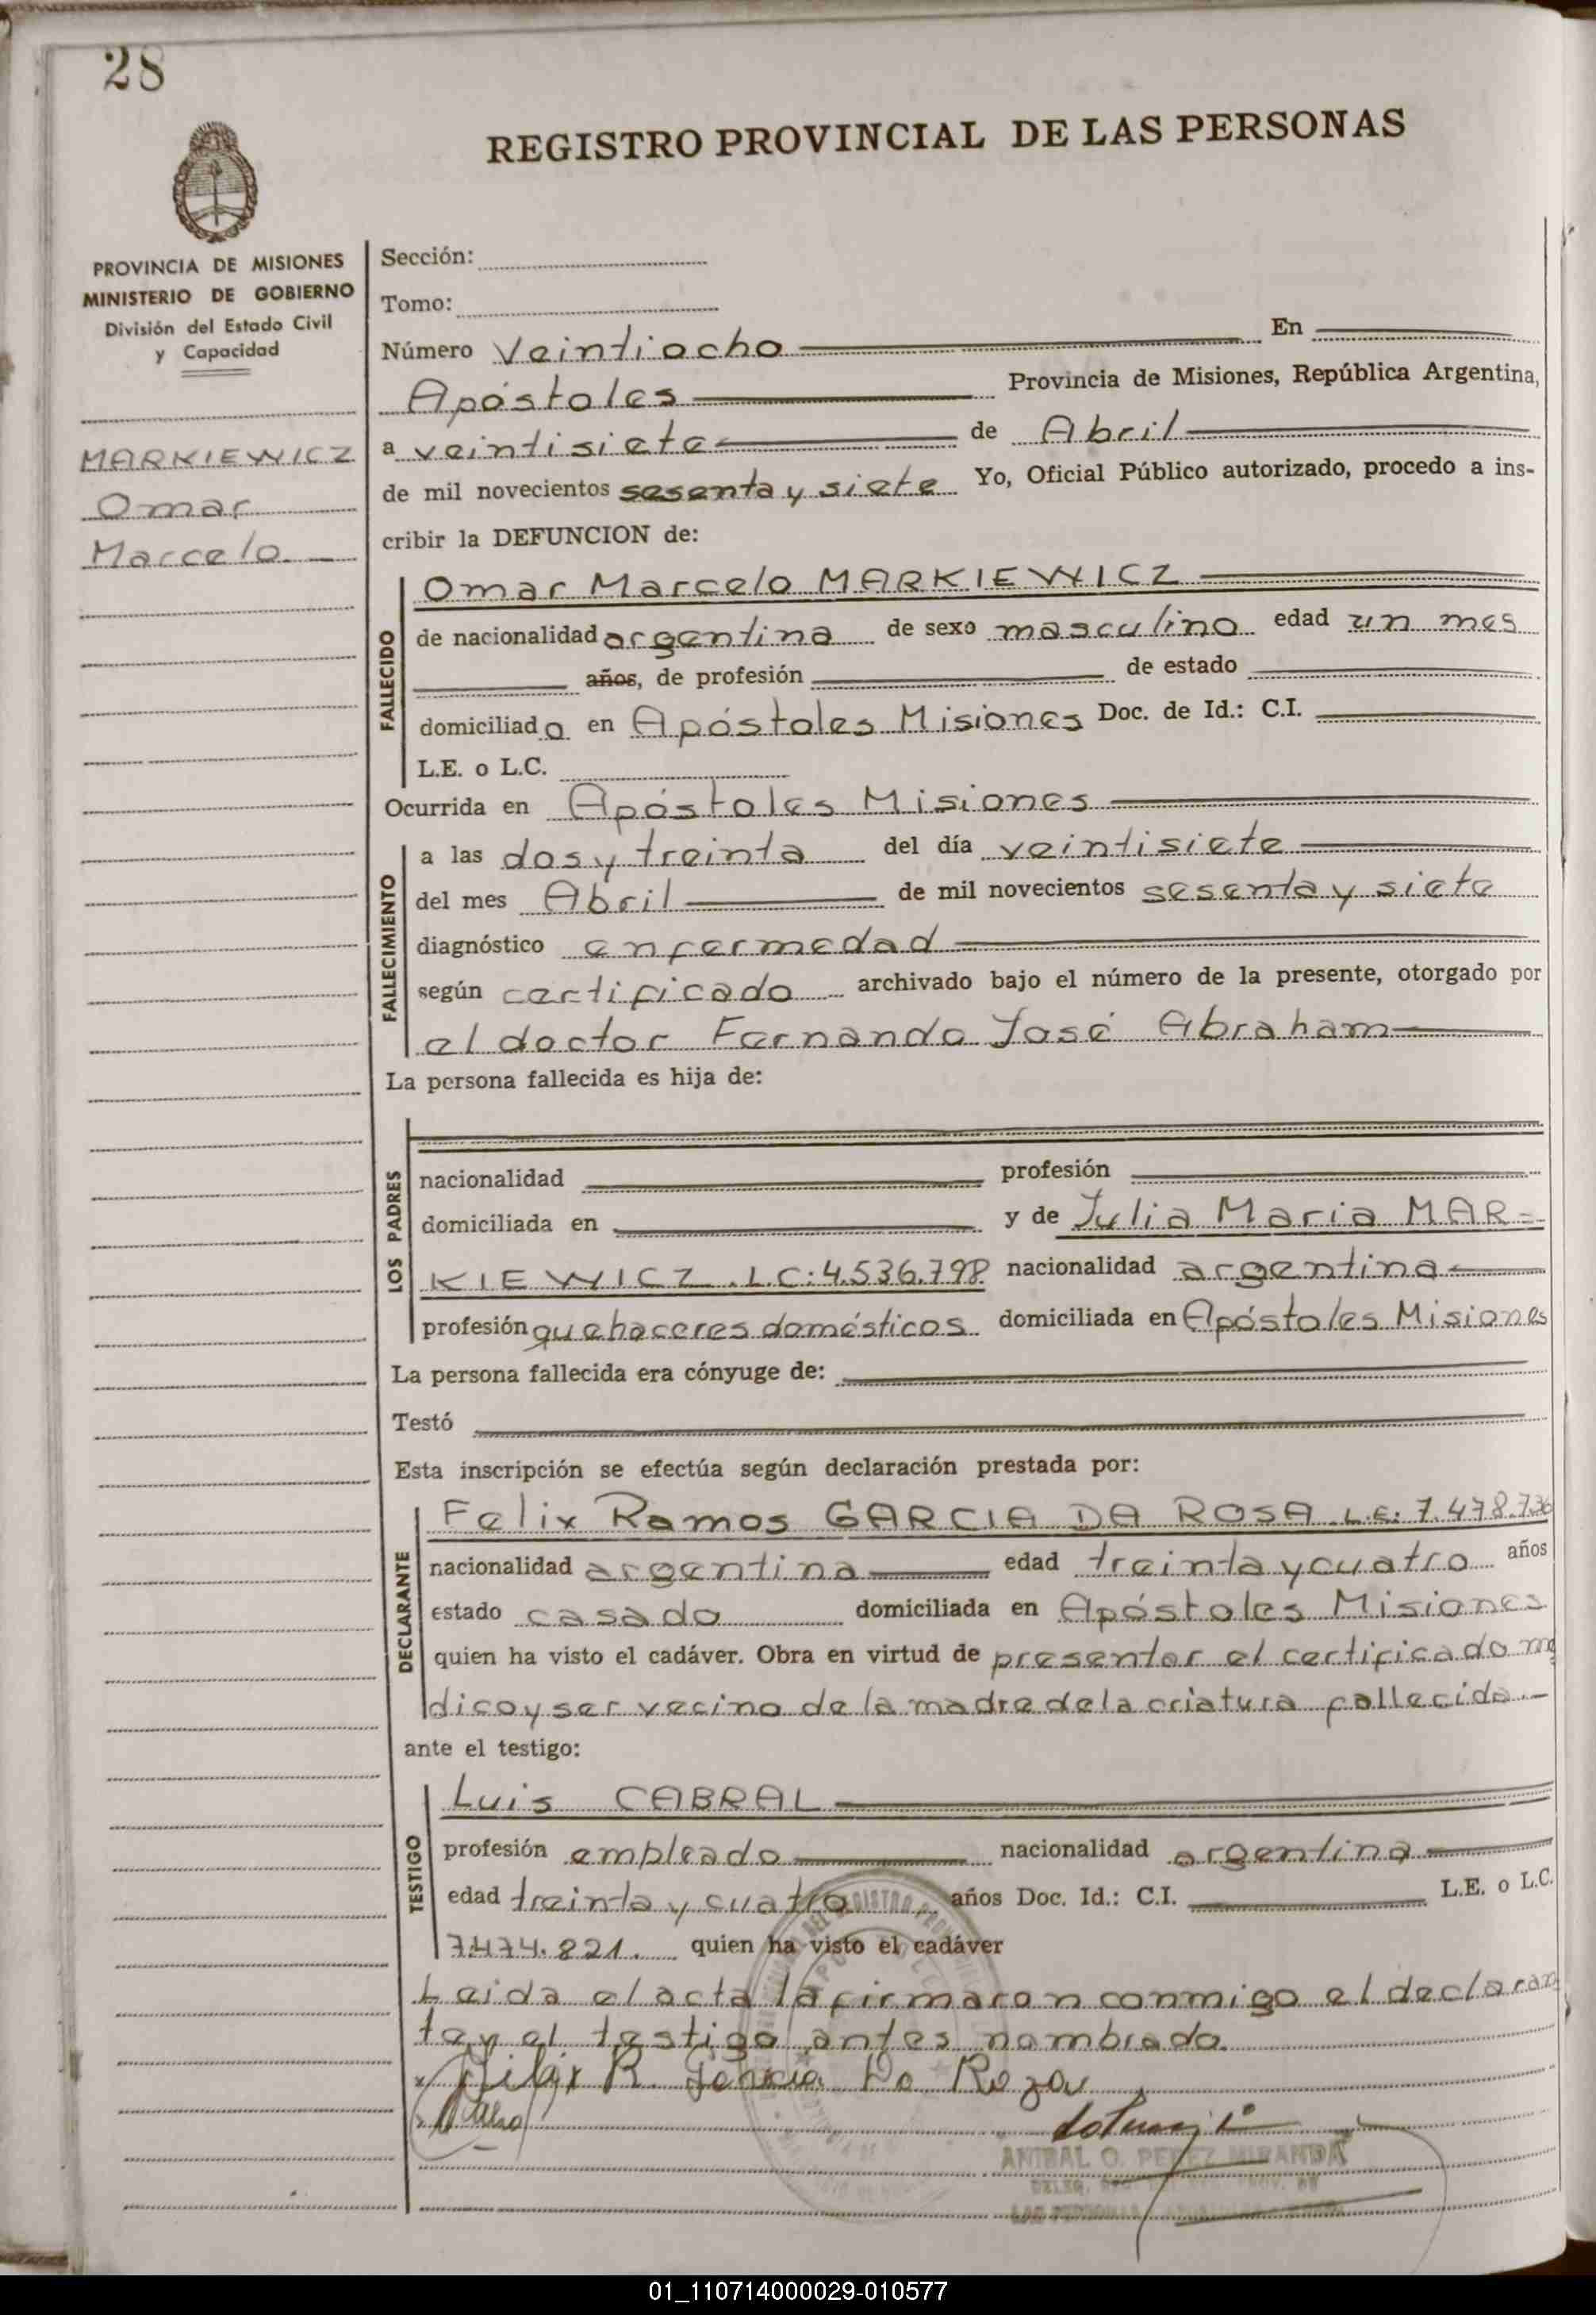 28
REGISTRO PROVINCIAL DE LAS PERSONAS
PROVINCIA DE MISIONES
MINISTERIO DE GOBIERNO
División del Estado Civil
y Capacidad
MARKIEWICZ
Omar
Marcelo
Sección:
Tomo:
Número Veintiocho En
Apóstoles Provincia de Misiones, República Argentina,
a veintisiete de Abril
de mil novecientos sesenta y siete Yo, Oficial Público autorizado, procedo a ins-
cribir la DEFUNCION de:
FALLECIDO
Omar Marcelo MARKIEWICZ
de nacionalidad argentina de sexo masculino edad un mes
años, de profesión de estado
domiciliado en Apóstoles Misiones Doc. de Id.: C.I.
L.E. o L.C.
Ocurrida en Apóstoles Misiones
FALLECIMIENTO
a las dos y treinta del día veintisiete
del mes Abril de mil novecientos sesenta y siete
diagnóstico enfermedad
según certificado archivado bajo el número de la presente, otorgado por
el doctor Fernando José Abraham
La persona fallecida es hija de:
LOS PADRES
nacionalidad profesión
domiciliada en y de Julia Maria MAR-
KIEWICZ.L.C:4.536.798 nacionalidad argentina
profesión quehaceres domésticos domiciliada en Apóstoles Misiones
La persona fallecida era cónyuge de:
Testó
Esta inscripción se efectúa según declaración prestada por:
DECLARANTE
Felix Ramos GARCIA DA ROSA.L.E: 7.478.736
nacionalidad argentina edad treinta y cuatro años
estado casado domiciliada en Apóstoles Misiones
quien ha visto el cadáver. Obra en virtud de presentar el certificado mé
dico y ser vecino de la madre de la criatura fallecida.-
ante el testigo:
TESTIGO
Luis CABRAL
profesión empleado nacionalidad argentina
edad treinta y cuatro años Doc. Id.: C.I. L.E. o L.C.
7.474.821. quien ha visto el cadáver
Leida el acta la firmaron conmigo el declaran
te y el testigo antes nombrado.
R. Garcia Da Roza
ANIBAL O. PEREZ MIRANDA
01_110714000029-010577